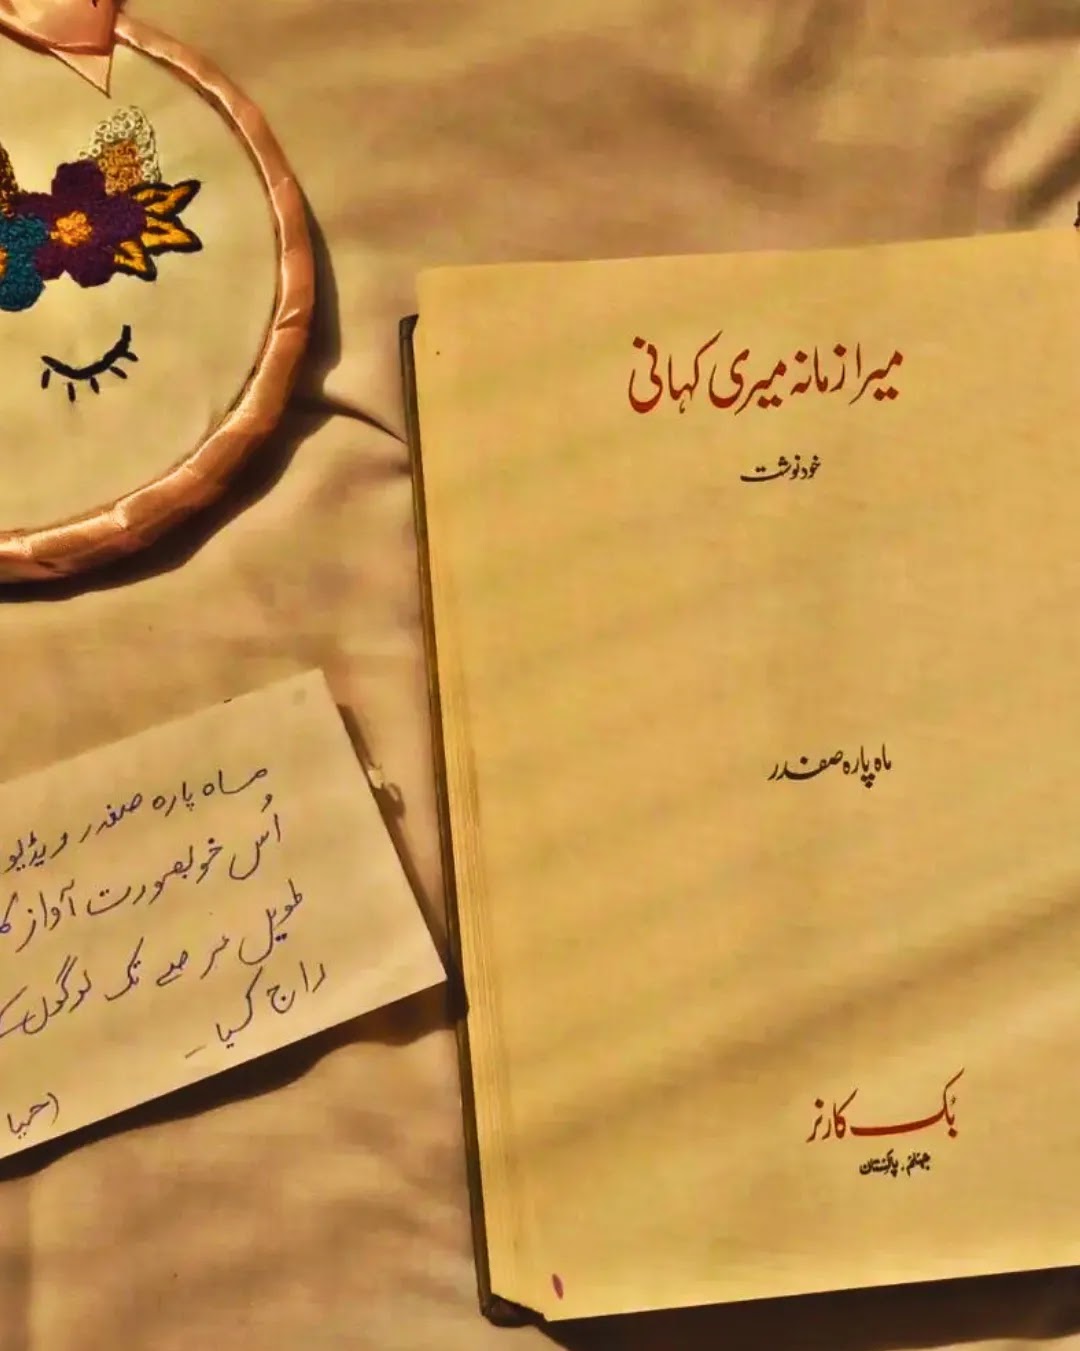 میرا زمانہ میری کہانی
خودنوشت
ماہ پارہ صفدر
بُک کارنر
جہلم، پاکستان
ماہ پارہ صفدر ویڈیو
اُس خوبصورت آواز کا
طویل عرصے تک لوگوں کے
راج کیا۔
(حیا